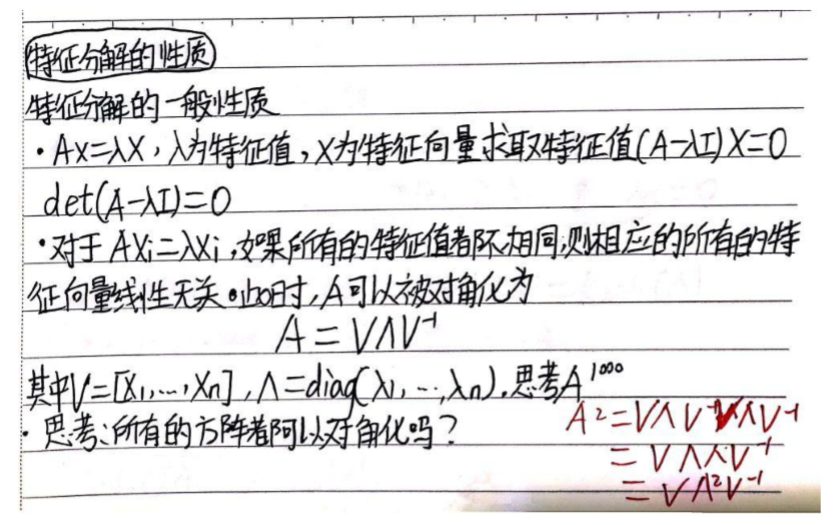 特征分解的性质
特征分解的一般性质
·Ax=λx,λ为特征值,x为特征向量求取特征值(A-λI)X=0
det(A-λI)=0
·对于AXi=λXi,如果所有的特征值都不相同,则相应的所有的特
征向量线性无关。此时,A可以被对角化为
A=VΛV⁻¹
其中V=[X1,...,Xn],Λ=diag(λ1,...,λn).思考A¹⁰⁰⁰
·思考:所有的方阵都可以对角化吗?
A²=VΛV⁻¹VΛV⁻¹
=VΛΛV⁻¹
=VΛ²V⁻¹